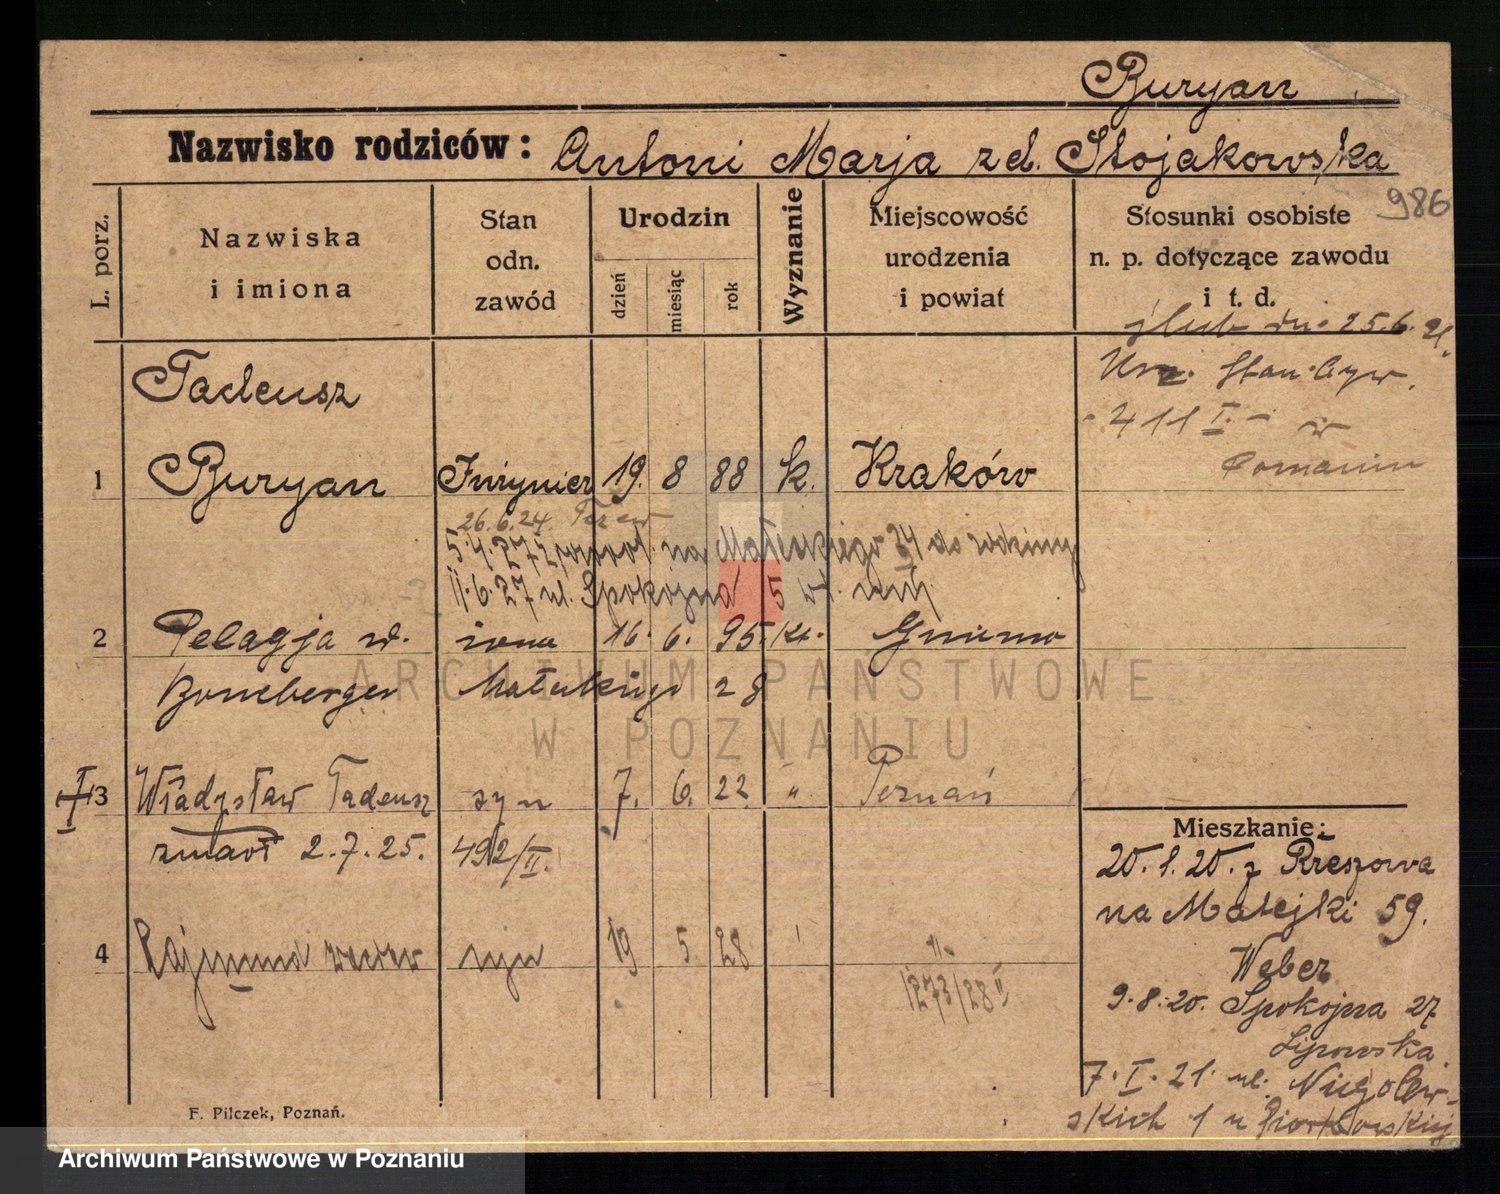 Buryan
Nazwisko rodziców: Antoni Marja zd. Stojakowska
986
L. porz.
Nazwiska
i imiona
Stan
odn.
zawód
Urodzin
dzień
miesiąc
rok
Wyznanie
Miejscowość
urodzenia
i powiat
Stosunki osobiste
n. p. dotyczące zawodu
i t. d.
ślub dn. 25.6.21.
Urz. Stan. Cyw.
411 I. w
Poznaniu
Tadeusz
1 Buryan Inżynier 19. 8 88 k. Kraków
26.6.24.
5.4.27 na Małeckiego 24 do rodziny
11.6.27 ul. Spokojna 5
2 Pelagja w. żona 16. 6. 95. kt. Gniezno
Małeckiego 28
I 3 Władysław Tadeusz syn 7. 6. 22 " Poznań
zmarł 2.7.25. 492/II.
4 Rajmund syn 19 5 28 "
1273/28 II
Mieszkanie:
20.1.20. z Rzeszowa
na Matejki 59.
Weber
9.8.20. Spokojna 27
Lipowska
7.I.21. ul. Niegolew-
skich 1 u Piorkowskiej
F. Pilczek, Poznań.
ARCHIWUM PAŃSTWOWE
W POZNANIU
Archiwum Państwowe w Poznaniu